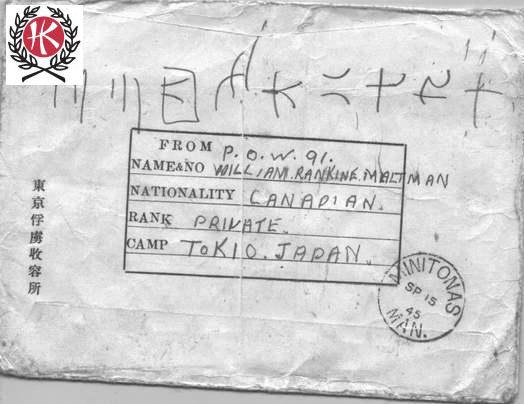 HK
FROM P.O.W. 91.
NAME&NO WILLIAM.RANKINE.MALTMAN
NATIONALITY CANADIAN.
RANK PRIVATE.
CAMP TOKIO.JAPAN.
東京俘虜收容所
MINITONAS
SP 15
45
MAN.